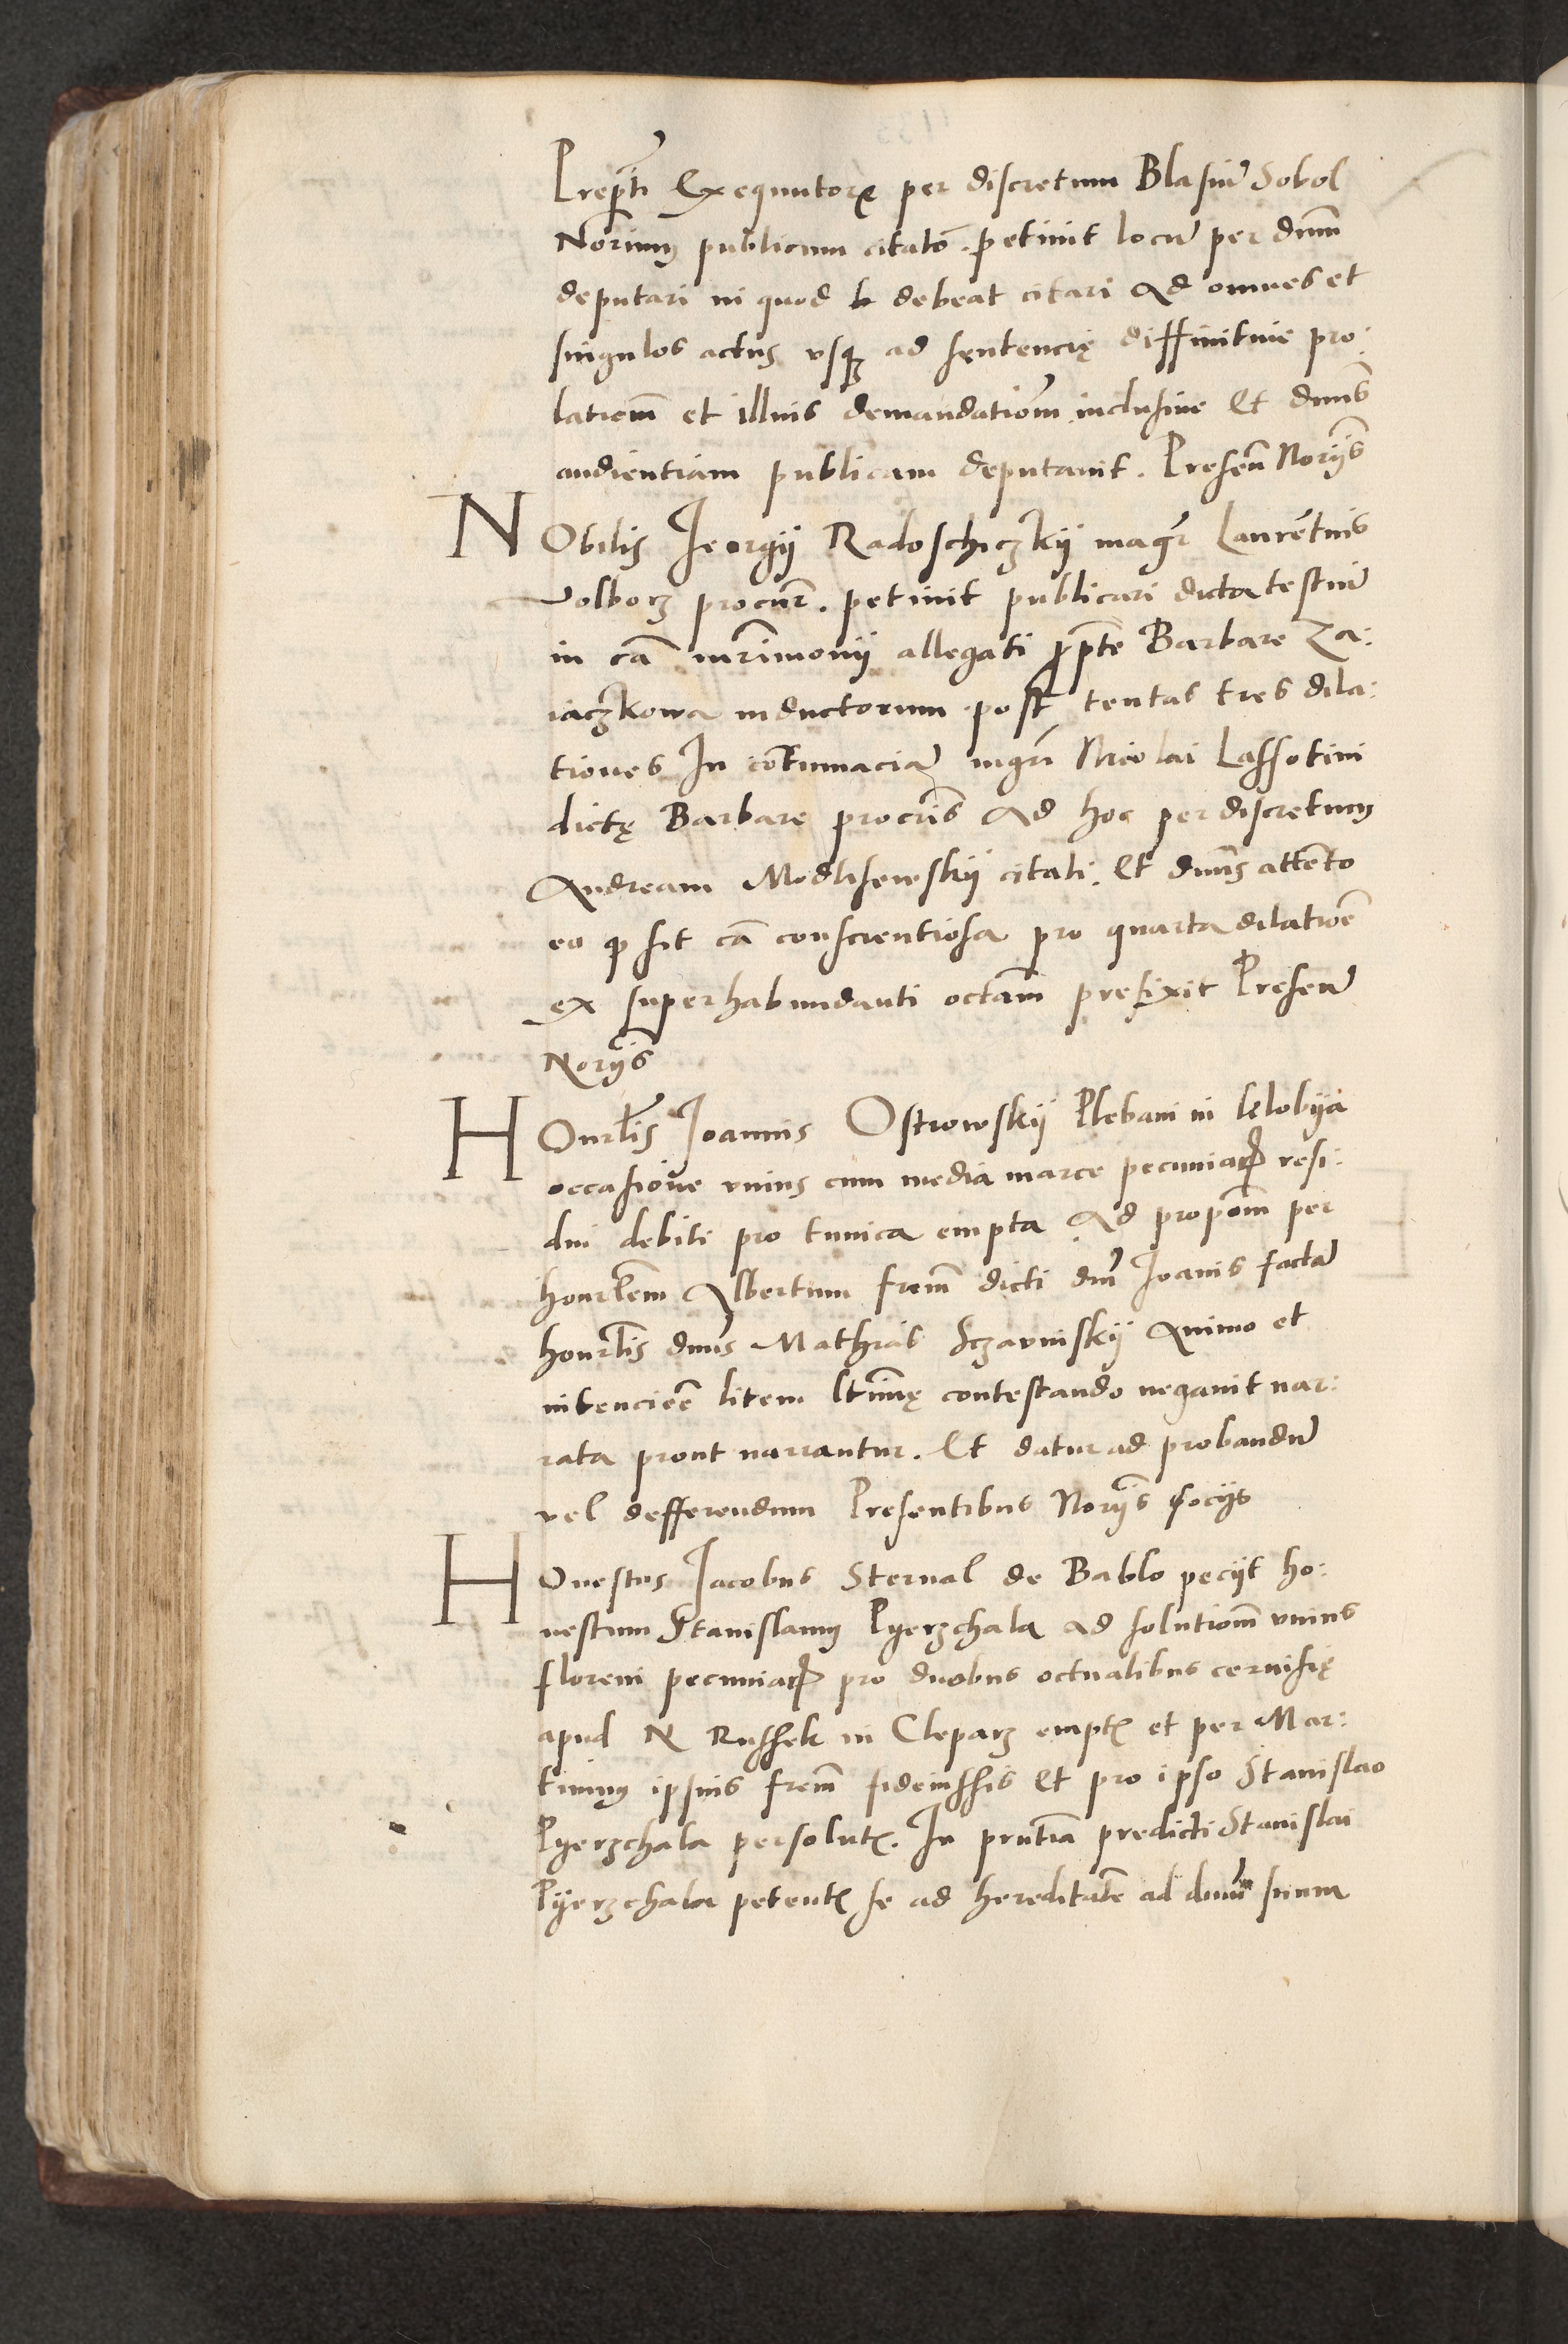 Preptī Exequutorꝝ per discretum Blasiū Sobol
Noriuꝫ publicum citatoꝝ. petiuit locū per dnm̄
deputari in quod debeat citari Ad omnes et
singulos actus vsqꝫ ad sentencię diffinitiue pro:
lationē et illius demandationē inclusiue Et dnūs
audientiam publicam deputauit. Presen̄ Norijs
NObilis Georgij Radoschiczkij magr̄ Laurētius
Volborz procur̄. petiuit publicari dicta testiū
in cā mr̄imonij allegati ꝑpte Barbare Za:
iaczkowa inductorum post tentas tres dila:
tiones In cōtumaciā mgr̄i Nicolai Lassotini
dictę Barbare procrīs Ad hoc per discretum
Andream Modlisewskij citati. Et dnūs attēto
eo ꝙ sit cā conscientiosa pro quarta dilatiōe
ex superhabundanti octauā prefixit Presen̄
Norijs
HOnrl̄is Joannis Ostrowskij Plebani in lelobija
occasione vnius cum media marce pecuniaꝝ resi:
dui debiti pro tunica empta Ad propōem per
honrl̄em Albertum frem̄ dicti dnī Joānis factā
honrl̄is dnūs Mathias Sczavinskij Animo et
intencioē litem ltīmę contestando negauit nar:
rata prout narrantur. Et datur ad probandū
vel defferendum Presentibus Norijs socijs
HOnestus Jacobus Sternal de Bablo pecijt ho:
nestum Stanislauꝫ Pyerzchala ad solutionē vnius
floreni pecuniaꝝ pro duobus octualibus ceruisię
apud N Russek in Cleparz emptꝭ et per Mar:
tinuꝫ ipsius frem̄ fideiussis Et pro ipso Stanislao
Pyerzchala persolutꝭ. In prn̄tia predicti Stanislai
Pyerzchala petentꝭ se ad hereditatē ad dnū suum